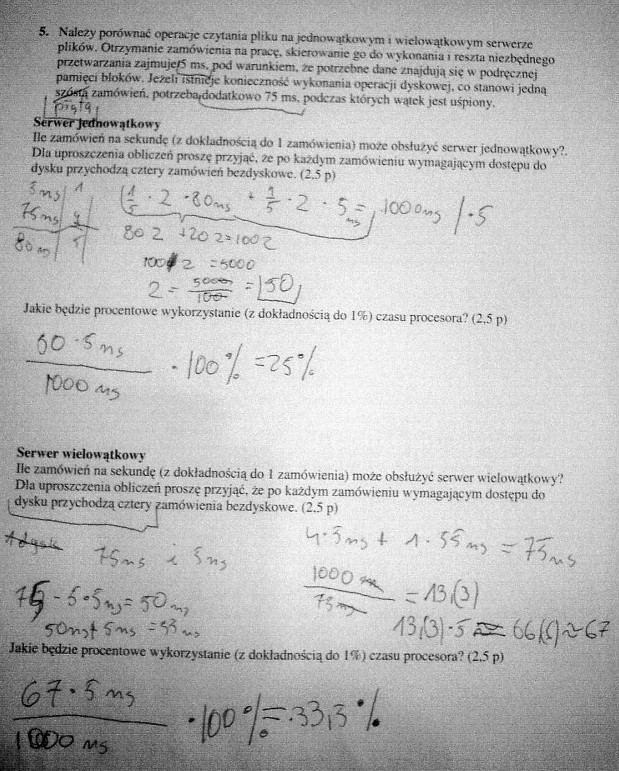 5. Należy porównać operacje czytania pliku na jednowątkowym i wielowątkowym serwerze
plików. Otrzymanie zamówienia na pracę, skierowanie go do wykonania i reszta niezbędnego
przetwarzania zajmuje 5 ms, pod warunkiem, że potrzebne dane znajdują się w podręcznej
pamięci bloków. Jeżeli istnieje konieczność wykonania operacji dyskowej, co stanowi jedną
szóstą zamówień, potrzeba dodatkowo 75 ms, podczas których wątek jest uśpiony.
piątą
Serwer jednowątkowy
Ile zamówień na sekundę (z dokładnością do 1 zamówienia) może obsłużyć serwer jednowątkowy?.
Dla uproszczenia obliczeń proszę przyjąć, że po każdym zamówieniu wymagającym dostępu do
dysku przychodzą cztery zamówień bezdyskowe. (2,5 p)
5 ms 1
75 ms 4
80 ms 5
1/5 · 2 · 80 ms + 4/5 · 2 · 5 ms = 1000 ms / · 5
80 2 + 20 2 = 100 2
100 2 = 5000
2 = 5000/100 = 50
Jakie będzie procentowe wykorzystanie (z dokładnością do 1%) czasu procesora? (2,5 p)
50 · 5 ms
· 100% = 25%
1000 ms
Serwer wielowątkowy
Ile zamówień na sekundę (z dokładnością do 1 zamówienia) może obsłużyć serwer wielowątkowy?
Dla uproszczenia obliczeń proszę przyjąć, że po każdym zamówieniu wymagającym dostępu do
dysku przychodzą cztery zamówienia bezdyskowe. (2,5 p)
75 ms i 5 ms
4 · 5 ms + 1 · 55 ms = 75 ms
75 - 5 · 5 ms = 50 ms
50 ms + 5 ms = 55 ms
1000 ms / 75 ms = 13,(3)
13,(3) · 5 = 66,(6) ≈ 67
Jakie będzie procentowe wykorzystanie (z dokładnością do 1%) czasu procesora? (2,5 p)
67 · 5 ms
· 100% = 33,3%
1000 ms